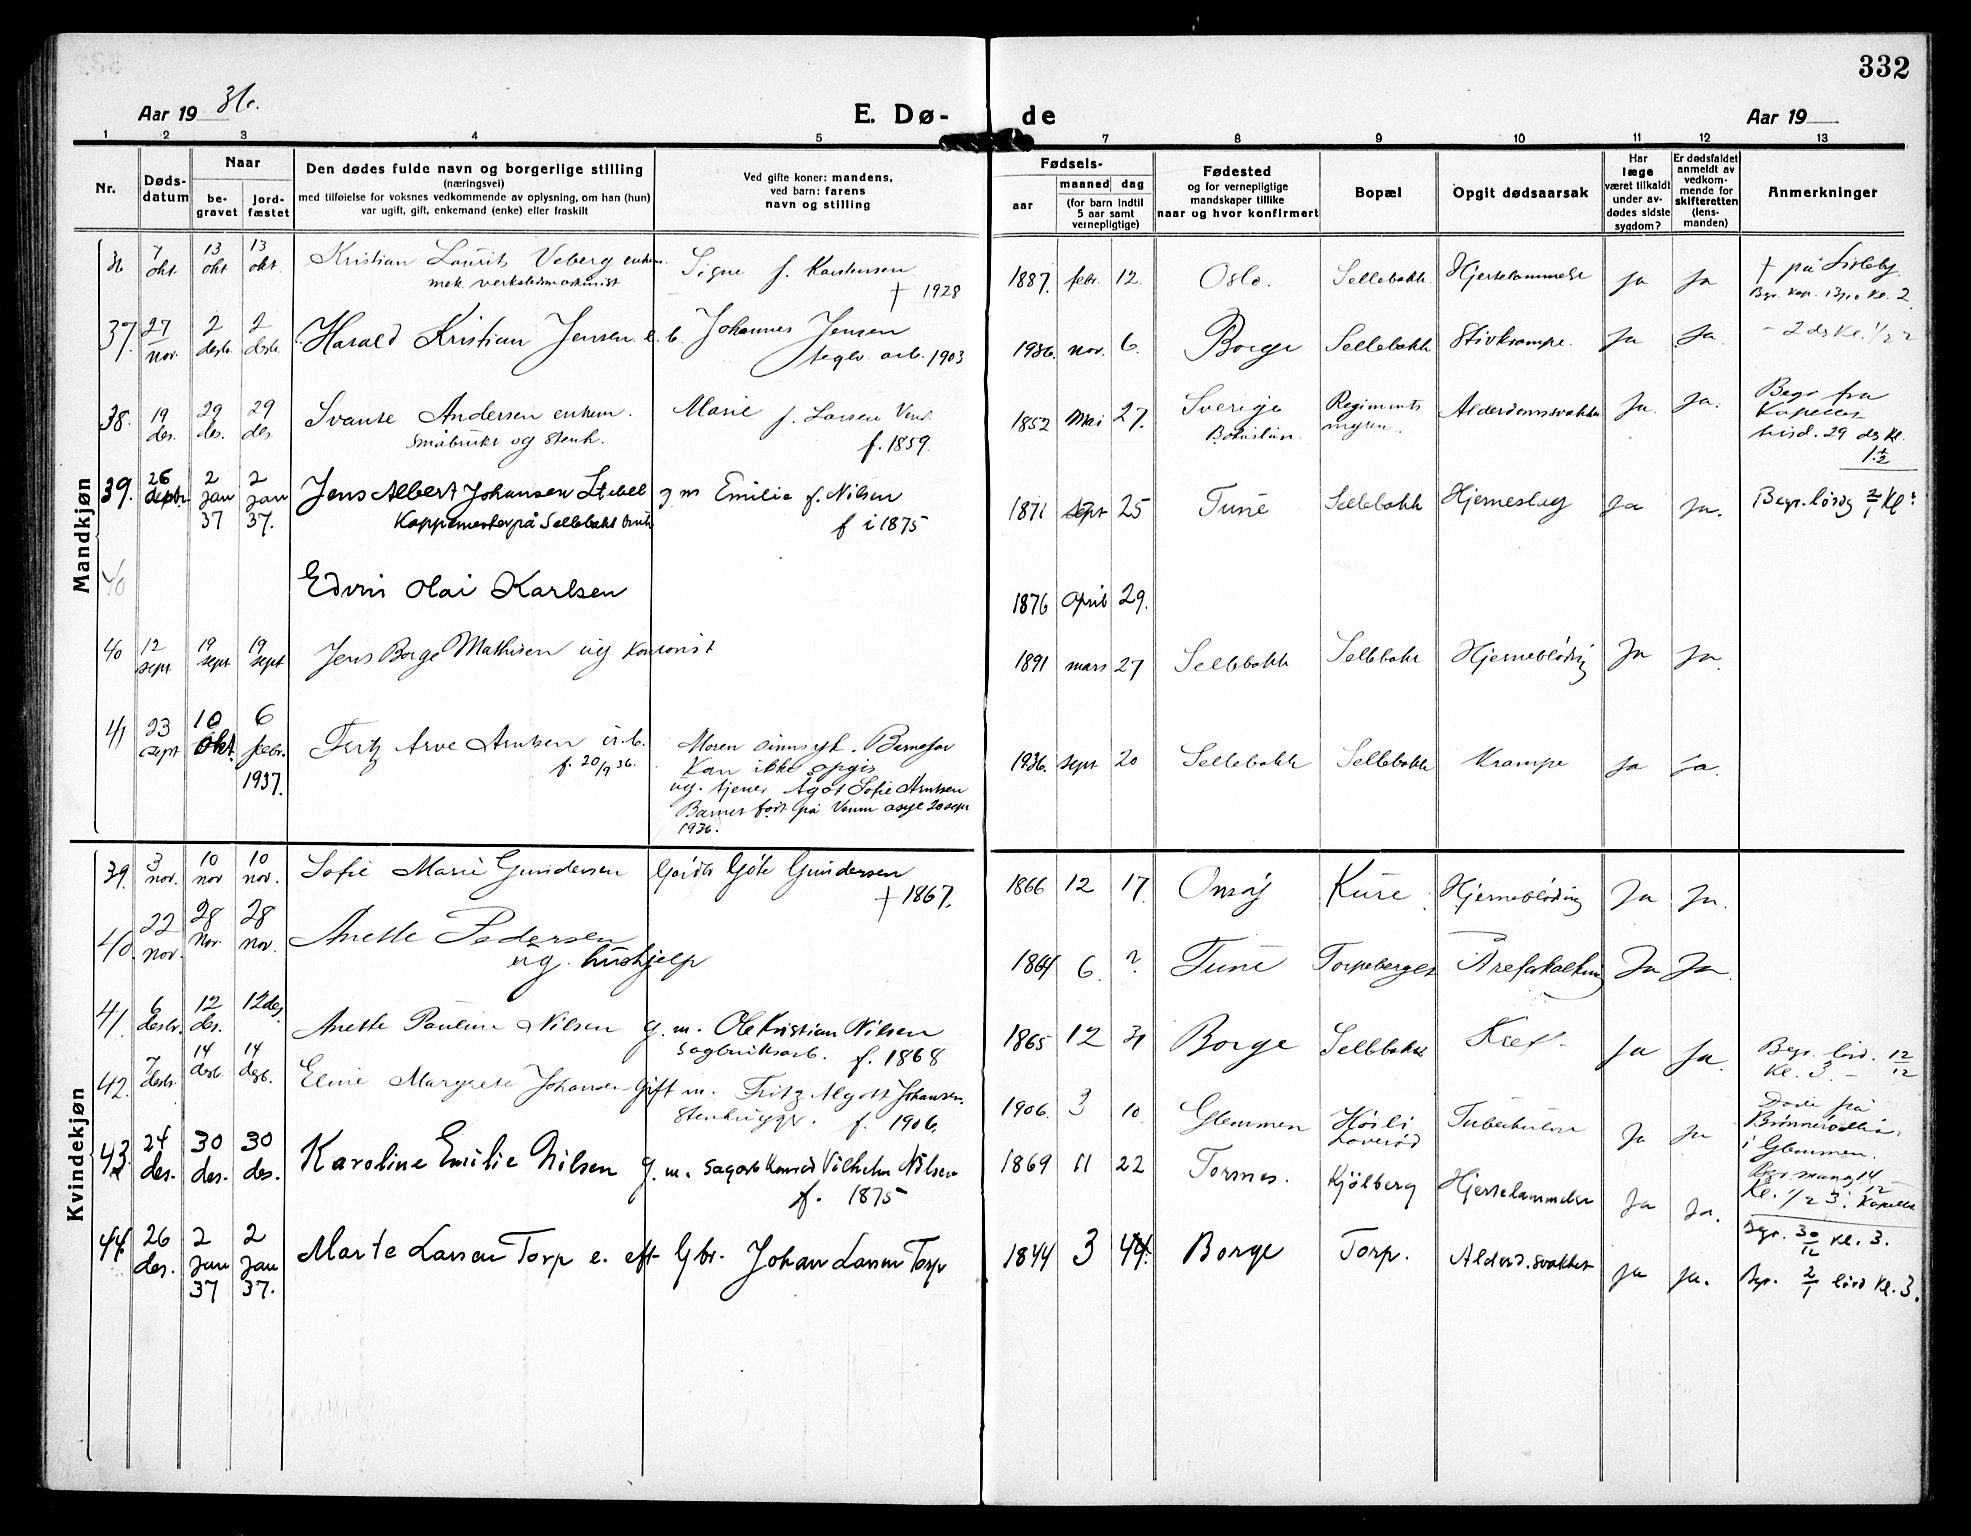 332
Aar 19 36.
E. Dø- de
Aar 19
1 2 3 4 5 7 8 9 10 11 12 13
Nr.
Døds-
datum
Naar
be-
gravet
jord-
fæstet
Den dødes fulde navn og borgerlige stilling
(næringsvei)
med tilføielse for voksnes vedkommende av oplysning, om han (hun)
var ugift, gift, enkemand (enke) eller fraskilt
Ved gifte koner: mandens,
ved barn: farens
navn og stilling
Fødsels-
aar
maaned dag
(for barn indtil
5 aar samt
vernepligtige)
Fødested
og for vernepligtige
mandskaper tillike
naar og hvor konfirmert
Bopæl
Opgit dødsaarsak
Har
læge
været tilkaldt
under av-
dødes sidste
sygdom?
Er dødsfaldet
anmeldt av
vedkom-
mende for
skifteretten
(lens-
manden)
Anmerkninger
Mandkjøn
36 7 okt 13 okt 13 okt. Kristian Laurits Veberg enkem. Signe f. Karstensen 1887. febr. 12. Oslo. Sellebakk Hjertelammelse Ja Ja † på Lisleby.
mek. verkstedsmaskinist † 1928
37. 27 nov. 2 desb. 2 desb. Harald Kristian Jensen e. b. Johannes Jensen 1936. nov. 6. Borge Sellebakk Stivkrampe. Ja Ja.
teglv. arb. 1903
38. 19 des. 29 des. 29 des. Svante Andersen enkem. Marie f. Larsen 1852 Mai 27. Sverige Regiments Alderdomssvakhet Ja. Ja. Begr. fra
småbruker og stenh. f. 1859. myren. Kapellet
tirsd. 29 ds kl.
1 1/2
39. 26 desbr. 2 Jan 37 2 Jan 37. Jens Albert Johansen g m Emilie f. Nilsen 1871 sept 25 Tune Sellebakk Hjerneslag Ja Ja. Begr. lørdg 2/1 Kl
på Sellebakk bruk f i 1875
40 Edvin Olai Karlsen 1876 April 29.
40 12 sept 19 sept 19 sept Jens Borge Mathisen ug kontorist 1891 mars 27 Sellebakk Sellebakk Hjerneblødng Ja Ja.
41 23 sept 10 okt. 6 febr. 1937. Fritz Arve Arntsen u. b. Moren sinnsyk. Barnefar 1936. sept 20 Sellebakk Sellebakk Krampe Ja Ja.
f. 20/9 36. kan ikke opgis
ug. tjener Agot Sofie Arntsen
Barnet født på Venm asyl 20 sept
1936.
Kvindekjøn
39. 3 nov. 10 nov 10 nov. Sofie Marie Gundersen Gundersen 1866 12 17. Onsøy Kure Hjerneblødning Ja Ja.
† 1867.
40. 22 nov. 28 nov. 28 nov. Anette Pedersen 1864 6 ? Tune Torpeberget Åreforkalkning Ja Ja
ug. hushjelp
41. 6 desbr. 12 des. 12 des. Anette Pauline Nilsen g. m. Ole Kristian Nilsen 1865 12 31 Borge Sellebakk Kreft Ja Ja. Begr. lørd. 12/12
sagbruksarb. f. 1868 Kl. 3.
42. 7 desbr. 14 desb. 14 desb. Eline Margrete Johansen gift m. Fritz Algott Johansen. 1906. 3 10 Glemmen Høili Tuberkulose Ja Ja Døde på
Stenhugger. f. 1906. i Glemmen.
43. 24 des. 30 des. 30 des. Karoline Emilie Nilsen g. m. sagarb Konrad Vilhelm Nilsen 1869 11 22 Torsnes. Kjölberg Hjertelammelse Ja Ja. Kl. 1/2 3. Kapellet
f. 1875 Begr. 30/12 kl. 3.
44. 26 des. 2 Jan 37 2 Jan 37. Marte Larsen Torp e. eft Gbr. Johan Larsen Torp 1844 3 44. Borge Torp. Alderd. svakhet Ja Ja. Begr. 2/1 lørd Kl. 3.